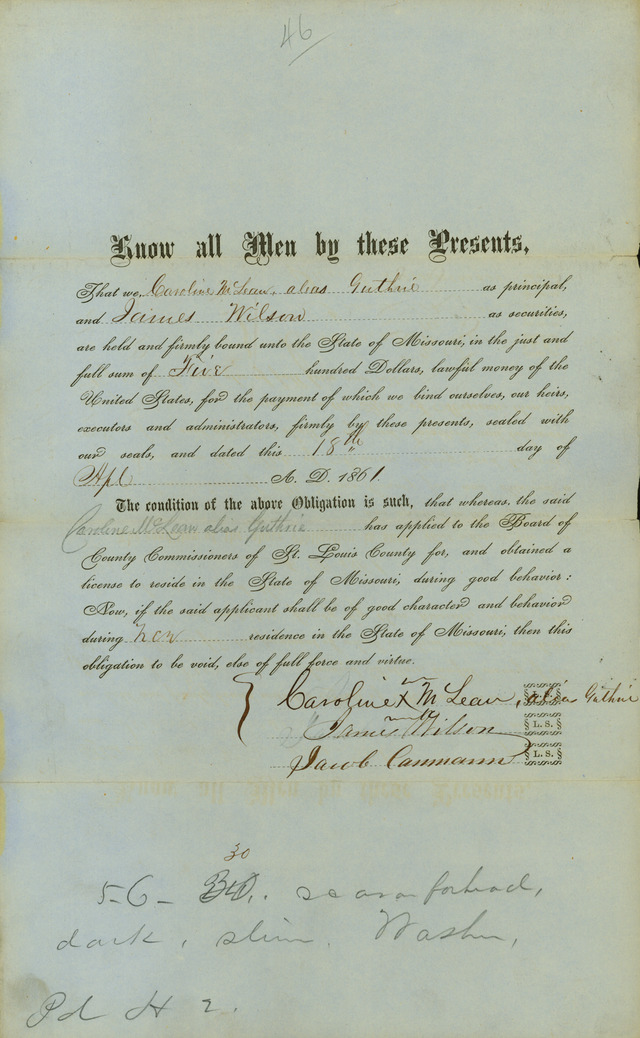 46
Know all Men by these Presents,
That we, Caroline McLean, alias Guthrie as principal,
and James Wilson as securities,
are held and firmly bound unto the State of Missouri, in the just and
full sum of Five hundred Dollars, lawful money of the
United States, for the payment of which we bind ourselves, our heirs,
executors and administrators, firmly by these presents, sealed with
our seals, and dated this 18th day of
Apl A. D. 1861.
The condition of the above Obligation is such, that whereas, the said
Caroline McLean alias Guthrie has applied to the Board of
County Commissioners of St. Louis County for, and obtained a
license to reside in the State of Missouri, during good behavior:
Now, if the said applicant shall be of good character and behavior
during her residence in the State of Missouri, then this
obligation to be void, else of full force and virtue.
Caroline X McLean, alias Guthrie
James Wilson L. S.
Jacob Canmann L. S.
30
5-6- scar on forhead,
dark, slim. Washer,
Pd H 2.